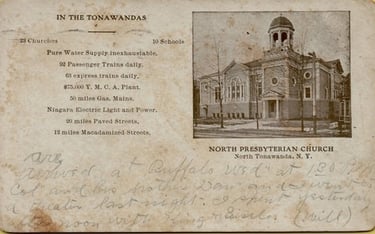 IN THE TONAWANDAS
23 Churches 10 Schools
Pure Water Supply, inexhaustable,
92 Passenger Trains daily,
63 express trains daily,
$75,000 Y. M. C. A. Plant.
50 miles Gas, Mains.
Niagara Electric Light and Power.
20 miles Paved Streets,
12 miles Macadamized Streets,
NORTH PRESBYTERIAN CHURCH
North Tonawanda, N. Y.
at Buffalo at
and went
last night. I spent yesterday
with (Will)